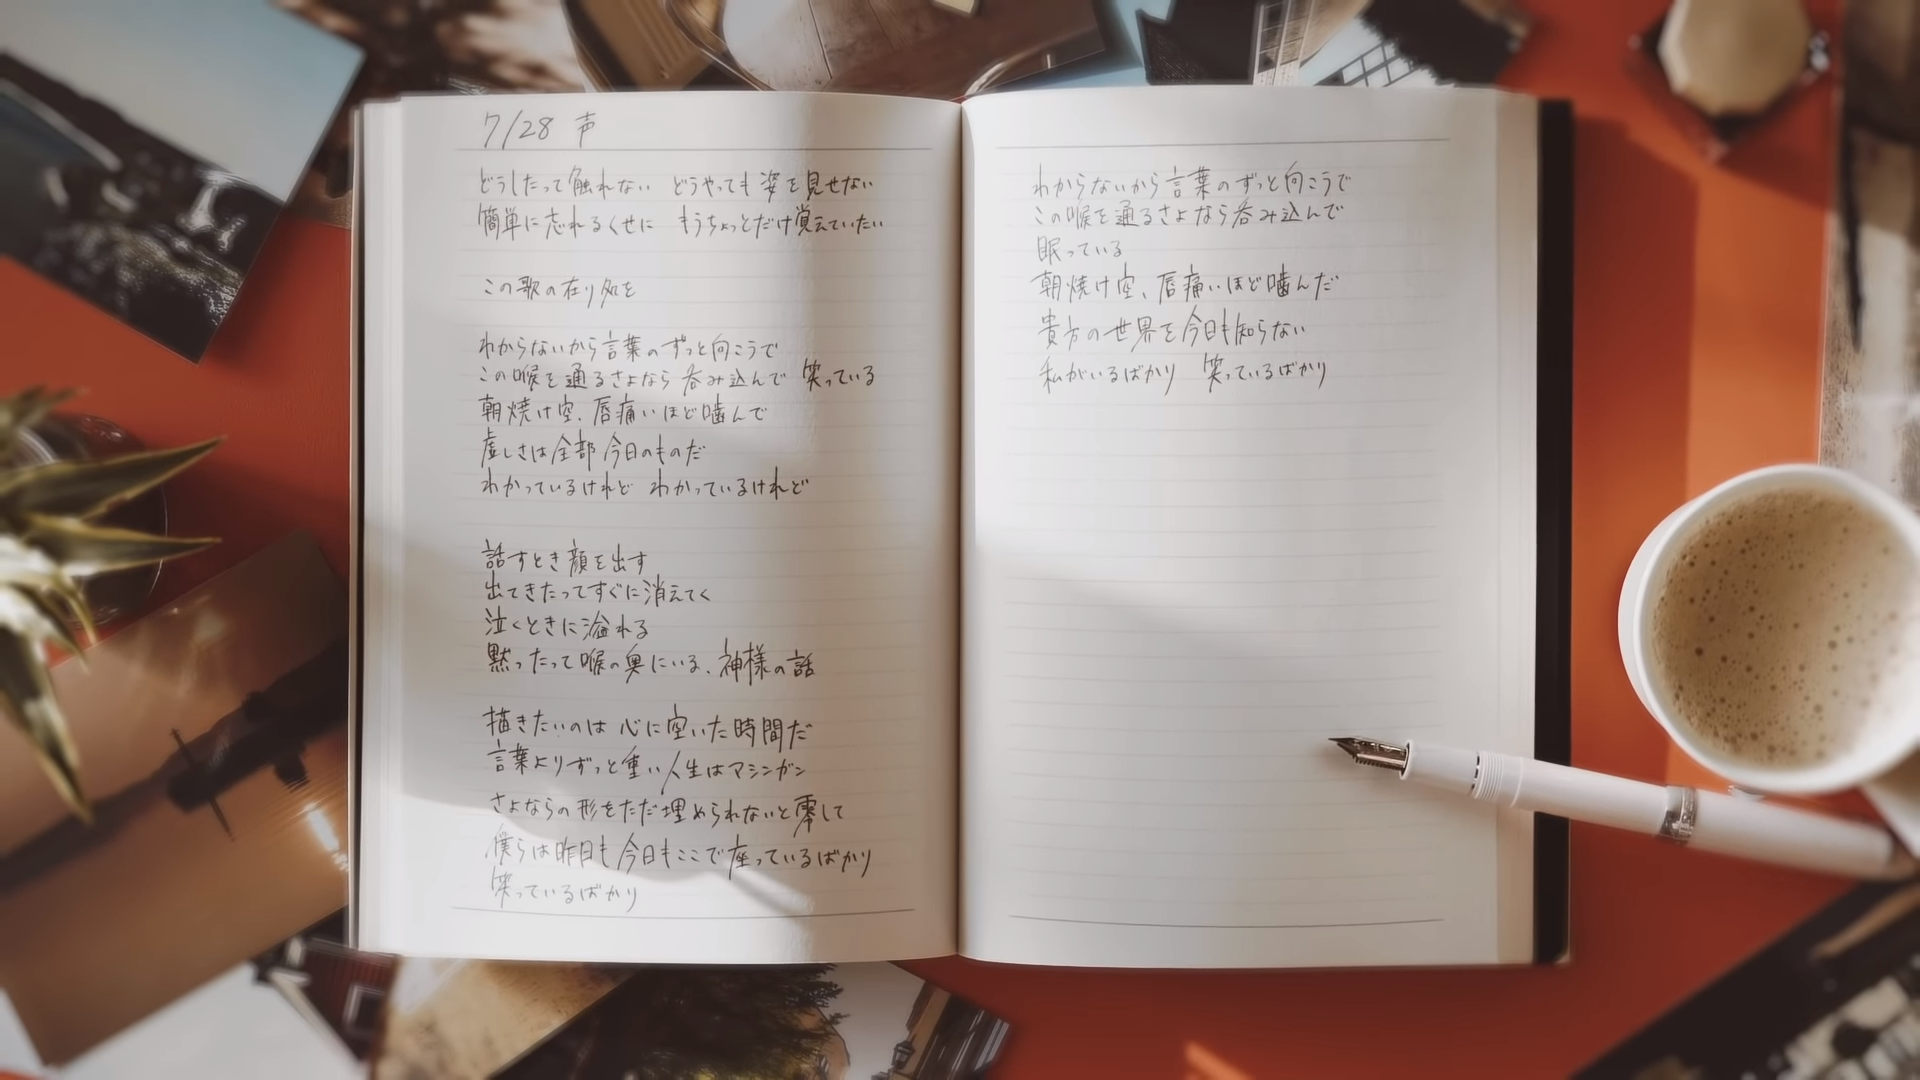 7/28 声
どうしたって触れない どうやっても姿を見せない
簡単に忘れるくせに もうちょっとだけ覚えていたい
この歌の在り処を
わからないから言葉のずっと向こうで
この喉を通るさよなら呑み込んで 笑っている
朝焼け空、唇痛いほど噛んで
虚しさは全部今日のものだ
わかっているけれど わかっているけれど
話すとき顔を出す
出てきたってすぐに消えてく
泣くときに溢れる
黙ったって喉の奥にいる、神様の話
描きたいのは 心に空いた時間だ
言葉よりずっと重い人生はマシンガン
さよならの形をただ埋められないと零して
僕らは昨日も今日もここで座っているばかり
笑っているばかり
わからないから言葉のずっと向こうで
この喉を通るさよなら呑み込んで
眠っている
朝焼け空、唇痛いほど噛んだ
貴方の世界を今日も知らない
私がいるばかり 笑っているばかり